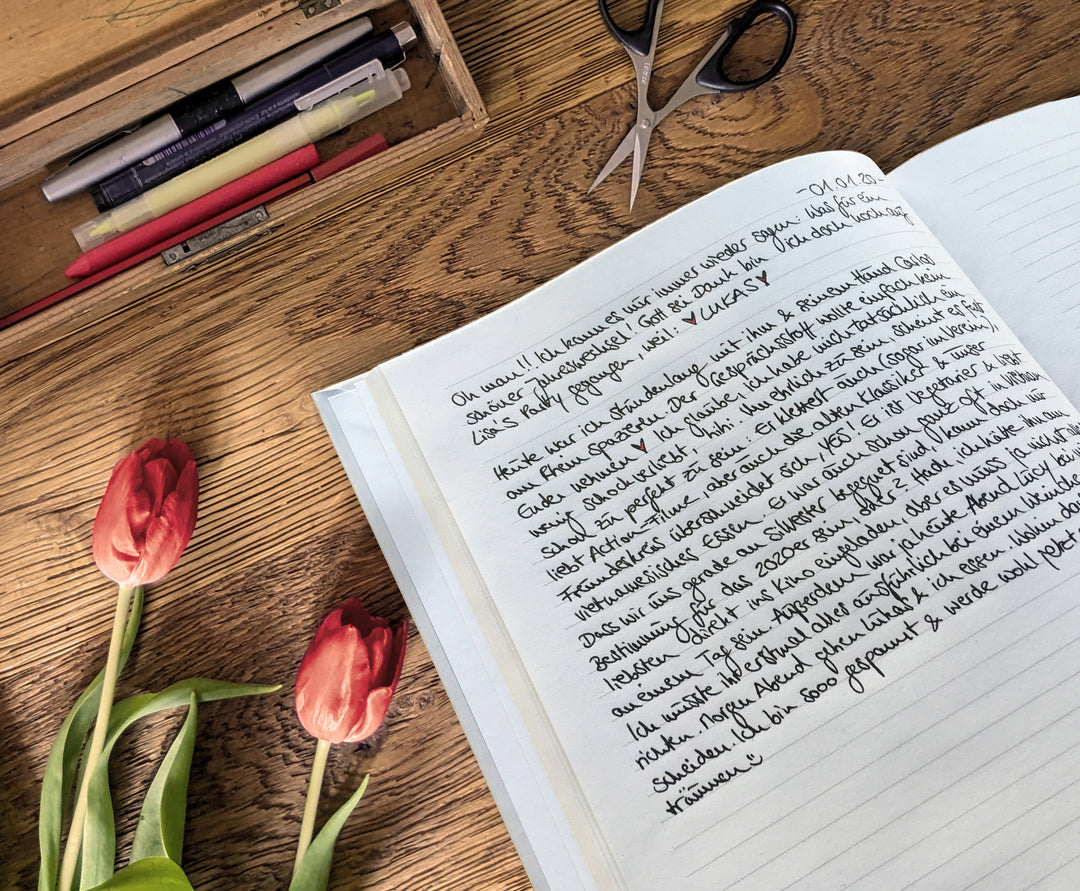 -01.01.20-
Oh man!!! Ich kann es mir immer wieder sagen: Was für ein
schöner Jahreswechsel! Gott sei Dank bin ich doch noch auf
Lisa's Party gegangen, weil: ♥LUKAS♥
Heute war ich stundenlang mit ihm & seinem Hund Carlos
am Rhein spazieren. Der Gesprächsstoff wollte einfach kein
Ende nehmen ♥ Ich glaube, ich habe mich tatsächlich ein
wenig schon verliebt, hihi. Ihm ehrlich zu sein, scheint es fast
schon zu perfekt zu sein: Er klettert auch (sogar im Verein),
liebt Action-Filme, aber auch die alten Klassiker & unser
Freundeskreis überschneidet sich, YES! Er ist Vegetarier & liebt
vietnamesisches Essen. Er war auch schon ganz oft in
Dass wir uns gerade an Silvester begegnet sind! kann doch nur
Bestimmung für das 2020er sein, oder? Hach, ich hätte ihn am
liebsten direkt ins Kino eingeladen, aber es muss ja nicht alles
an einem Tag sein. Außerdem war ja heute Abend Lucy bei
Ich musste ihr erstmal alles ausführlich bei einem
richten. Morgen Abend gehen Lukas & ich essen. Wohin
scheiden. Ich bin sooo gespannt & werde wohl jetzt
träumen☺